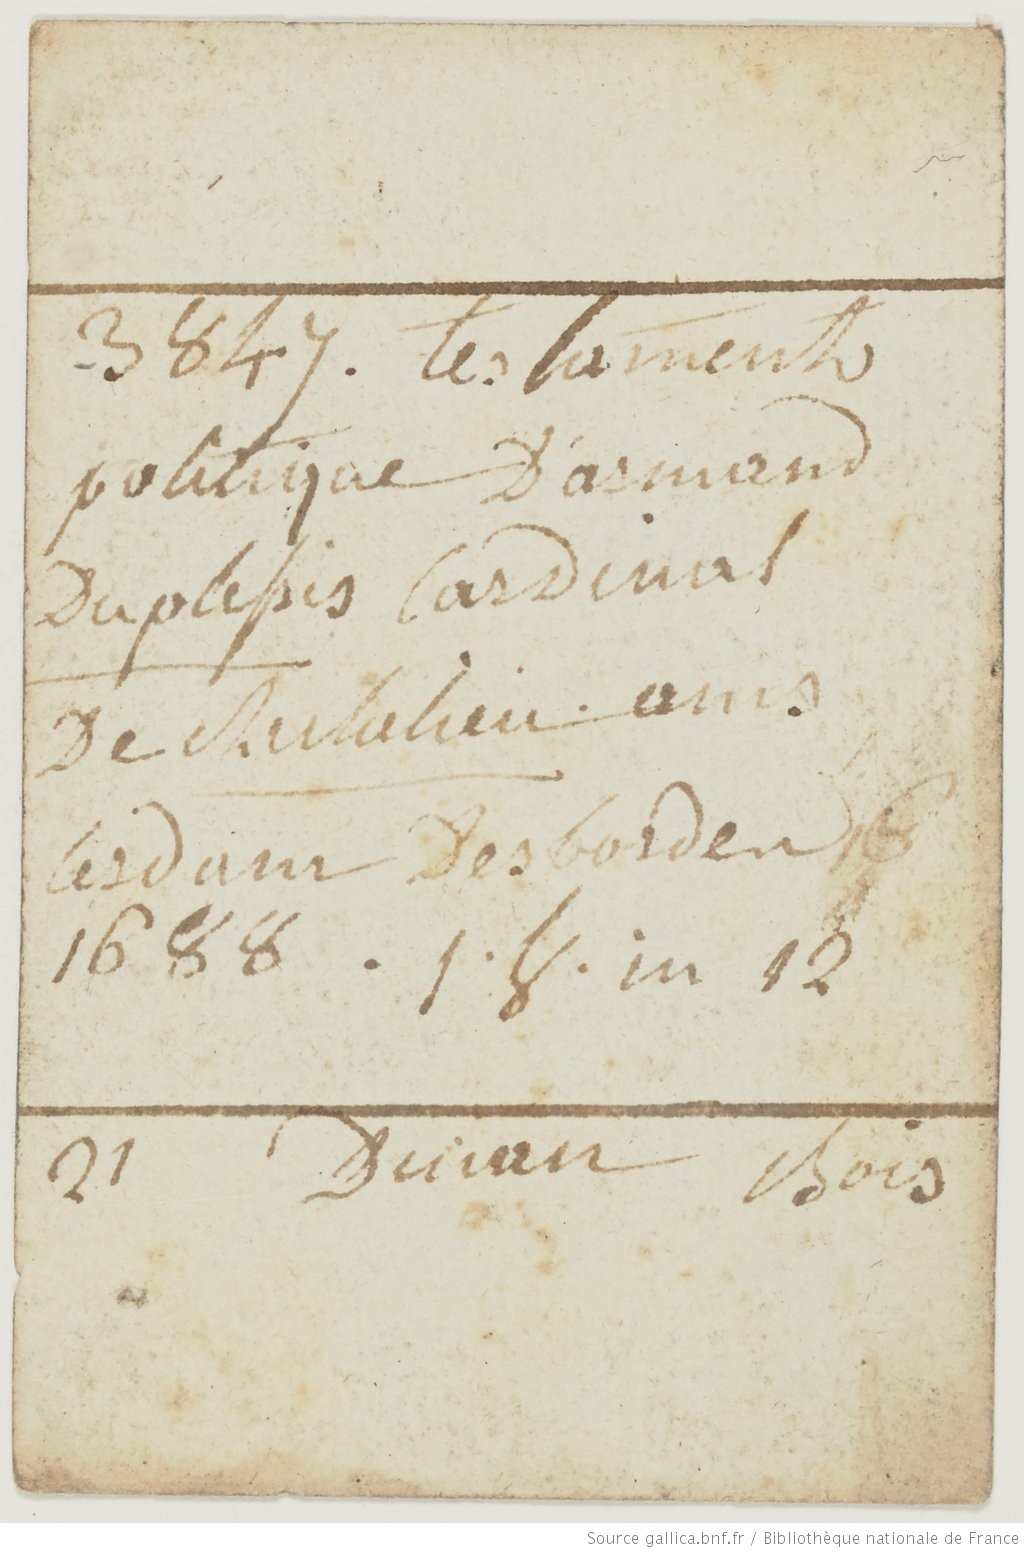 3847. testaments
politique D'armand
Duplessis Cardinal
De Richelieu. ams
terdam Desbordes
1688. 1. in 12
21 Dinan Bois
Source gallica.bnf.fr / Bibliothèque nationale de France